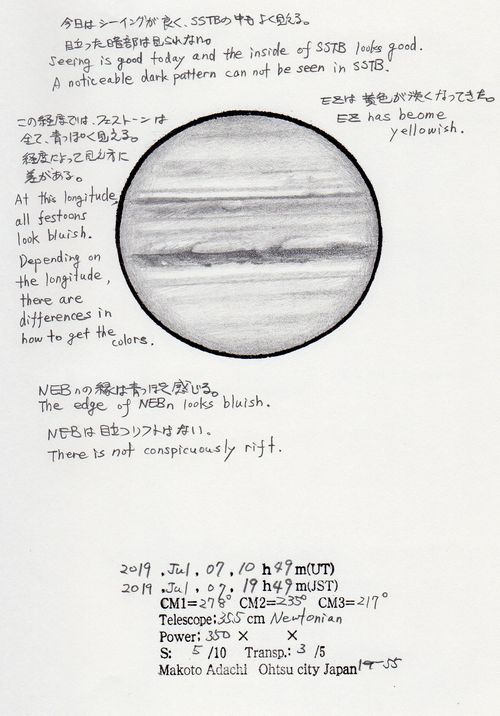 今日はシーイングが良く、SSTBの中もよく見える。
目立った暗部は見られない。
Seeing is good today and the inside of SSTB looks good.
A noticeable dark pattern can not be seen in SSTB.
EZは 黄色が淡くなってきた。
EZ has beome
yellowish.
この経度では、フェストーンは
全て、青っぽく見える。
経度によって見え方に
差がある。
At this longitude,
all festoons
look bluish.
Depending on
the longitude,
there are
differences in
how to get the colors.
NEBnの縁は青っぽく感じる。
The edge of NEBn looks bluish.
NEBは目立つリフトはない。
There is not conspicuously rift.
2019 .Jul . 07 . 10 h 49 m(UT)
2019 .Jul . 07 . 19 h 49 m(JST)
CM1=278° CM2=235° CM3=217°
Telescope: 35.5 cm Newtonian
Power: 350 × ×
S: 5 /10 Transp.: 3 /5
Makoto Adachi Ohtsu city Japan 19-55